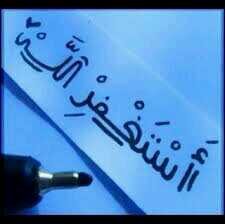 أَسْتَغْفِرُ اللَّهَ